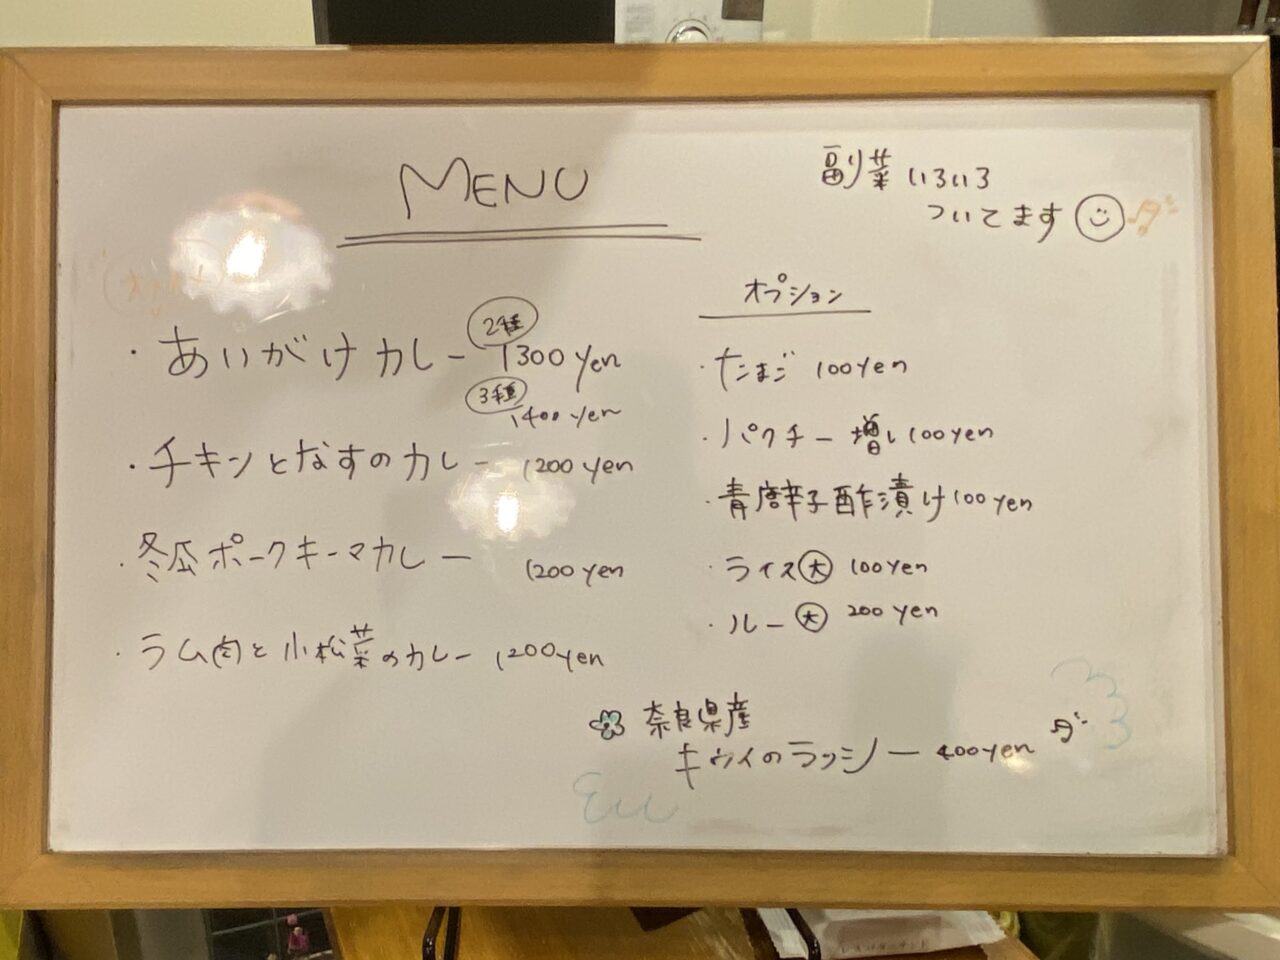 MENU
副菜 いろいろ
ついてます
・あいがけカレー 2種 1300yen
3種 1400yen
・チキンとなすのカレー 1200yen
・冬瓜ポークキーマカレー 1200yen
・ラム肉と小松菜のカレー 1200yen
オプション
・たまご 100yen
・パクチー増し 100yen
・青唐辛子酢漬け 100yen
・ライス大 100yen
・ルー大 200yen
奈良県産
キウイのラッシー 400yen